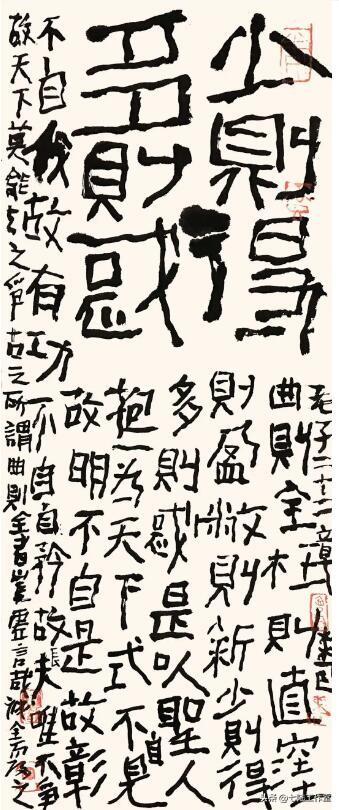 少則得
多則惑
老子二十二章
曲則全枉則直窪
則盈敝則新少則得
多則惑是以聖人
抱一为天下式不自見
故明不自是故彰
不自伐故有功不自自矜故長夫唯不爭
故天下莫能与之爭古之所謂曲則全者豈虛言哉誠全而歸之